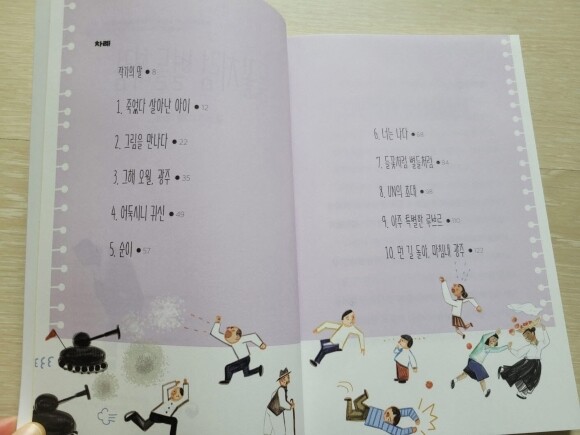 차례
작가의 말 ● 8
1. 죽었다 살아난 아이 ● 12
2. 그림을 만나다 ● 22
3. 그해 오월, 광주 ● 35
4. 어둑시니 귀신 ● 49
5. 순이 ● 57
6. 너는 나다 ● 68
7. 들꽃처럼 별들처럼 ● 84
8. UN의 초대 ●
9. 아주 특별한 루브르 ●
10. 먼 길 돌아, 마침내 광주 ● 123